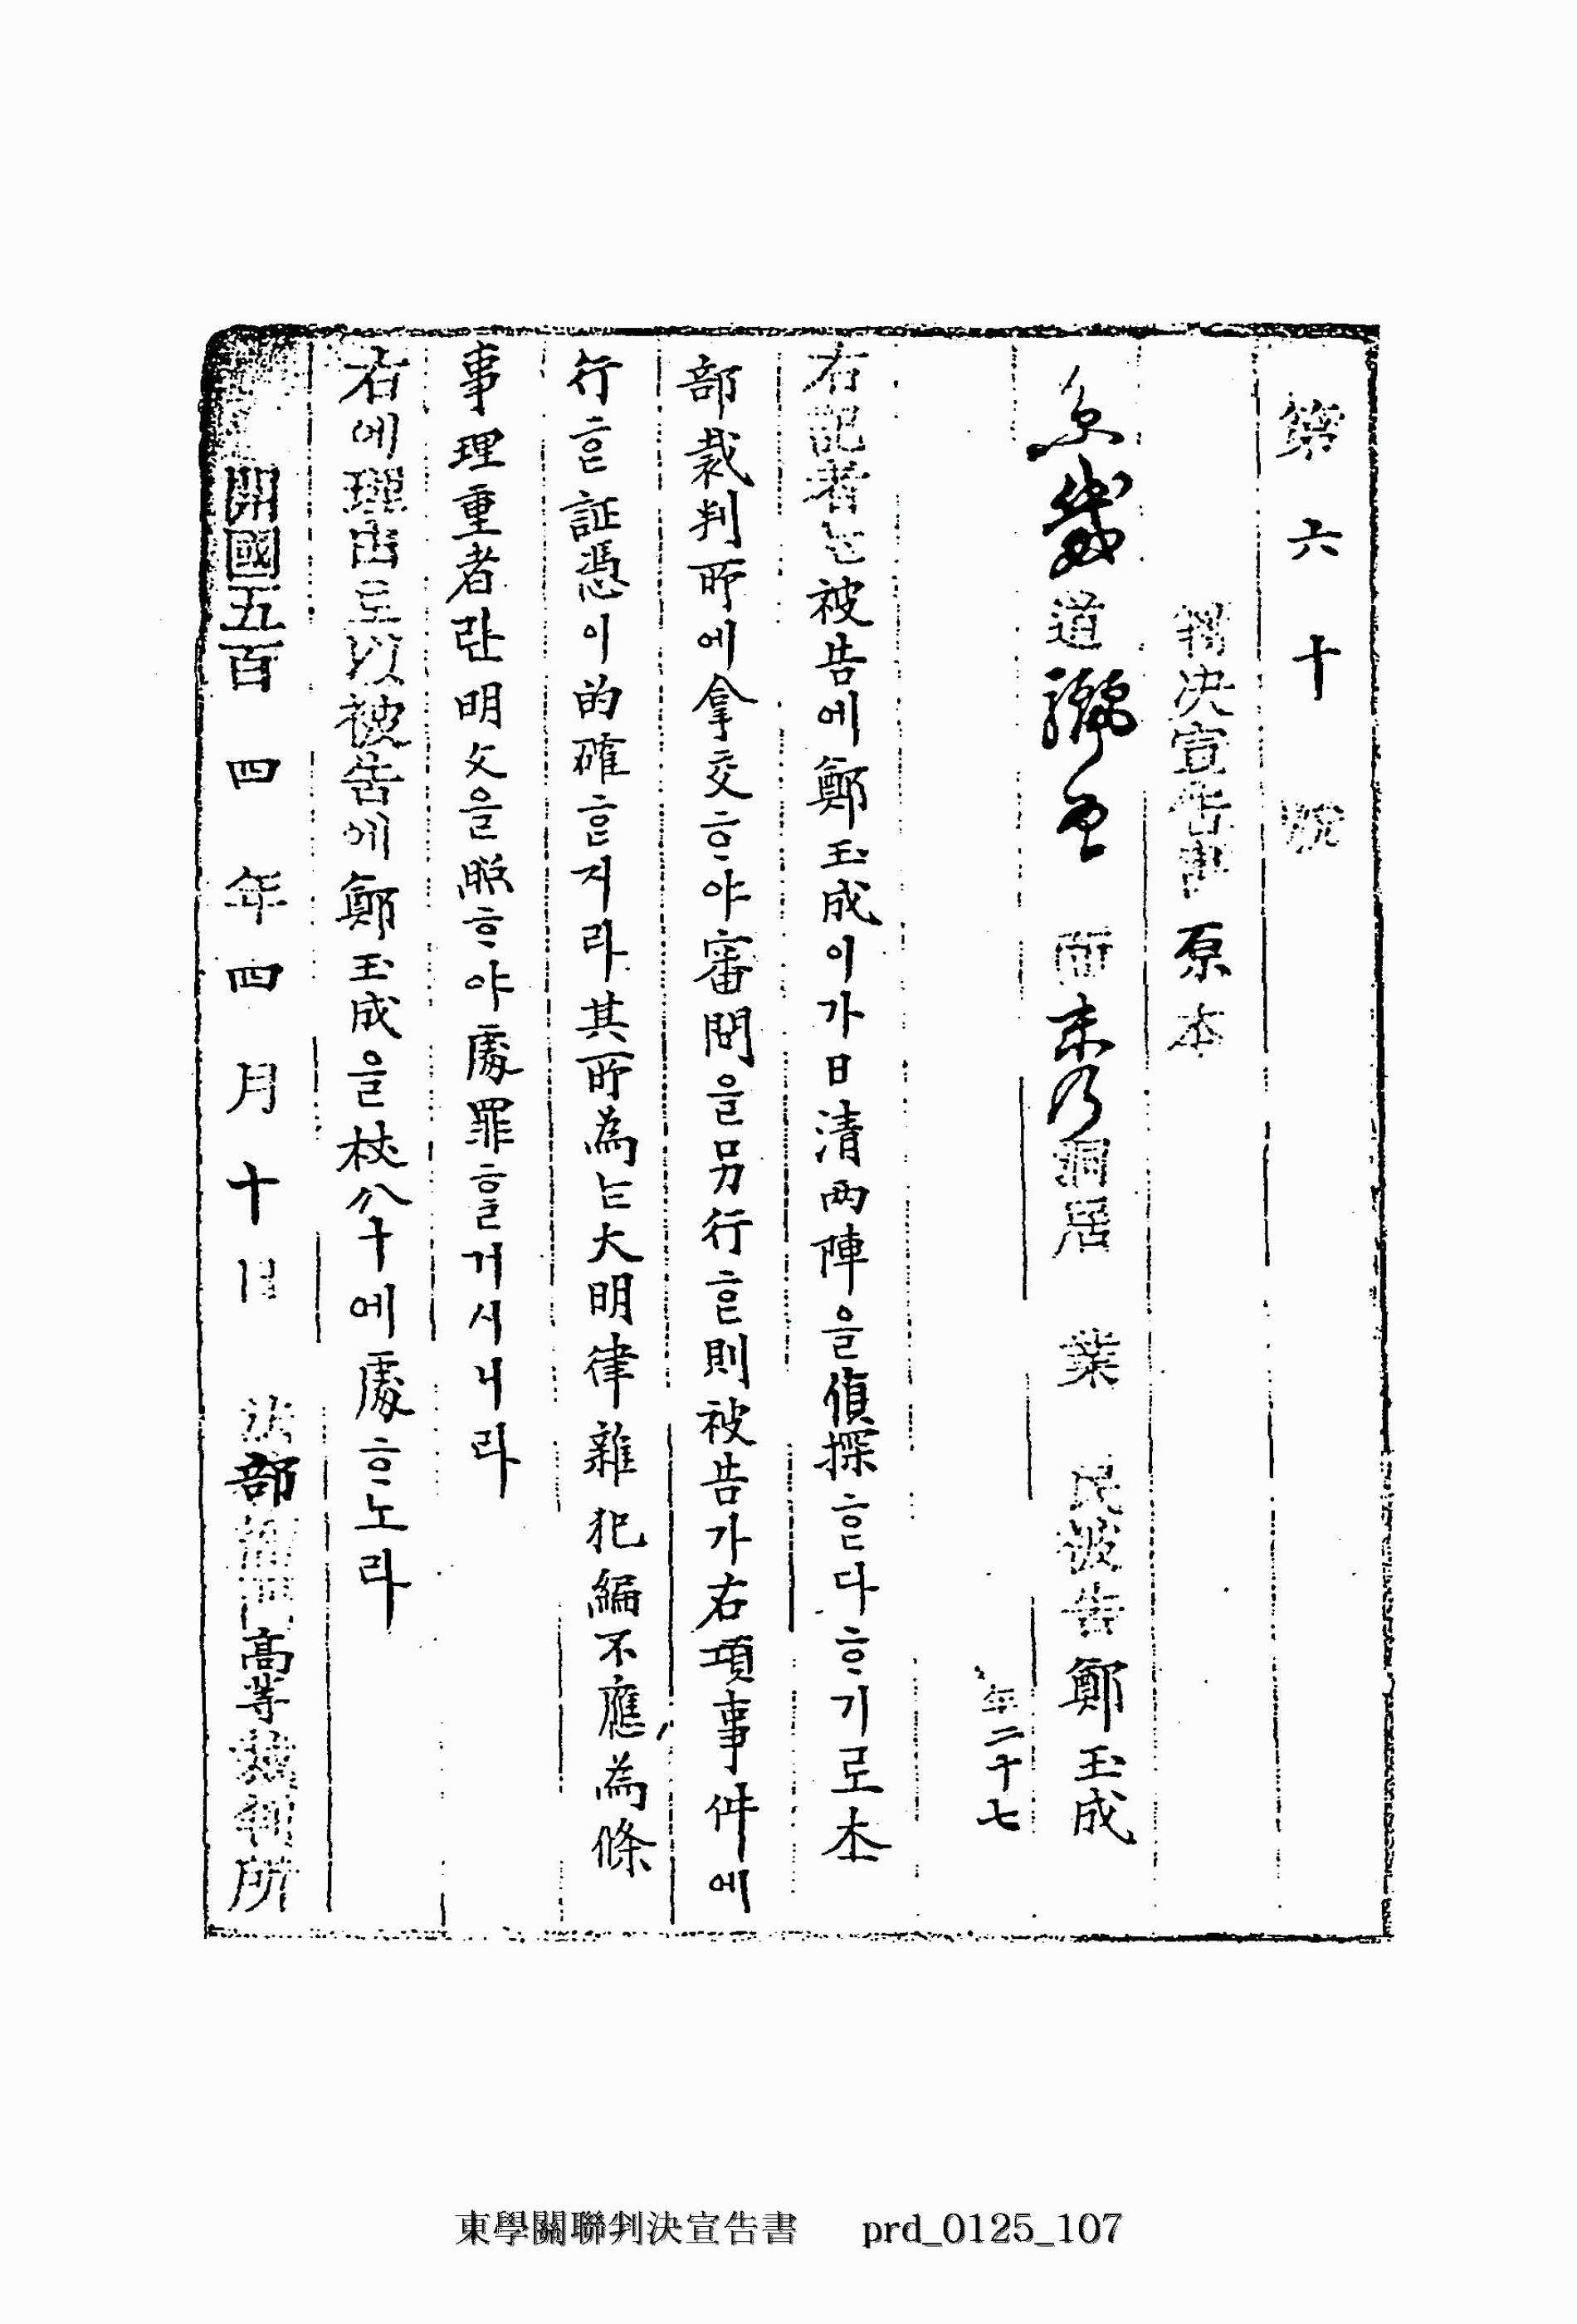 第六十號
判决宣告書原本
京畿道 面末乃洞居 業 民被告鄭玉成
年二十七
右記者는被告에鄭玉成이가日清两陣을偵探ᄒᆞᆫ다ᄒᆞ기로本
部裁判所에拿交ᄒᆞ야審問을另行ᄒᆞᆫ則被告가右項事件에
行ᄒᆞᆫ証憑이的確ᄒᆞᆫ지라其所為는大明律雜犯編不應為條
事理重者란明文을照ᄒᆞ야處罪ᄒᆞᆯ거시니라
右에理由로以被告에鄭玉成을杖八十에處ᄒᆞ노라
開國五百四年四月十日 法部 高等裁判所
東學關聯判決宣告書 prd_0125_107